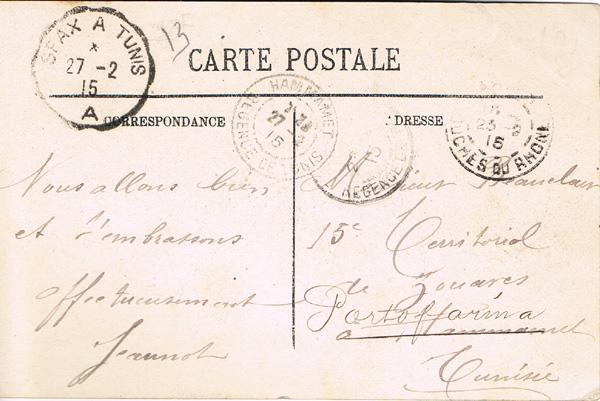 SFAX A TUNIS
*
27 -2
15
A
13
CARTE POSTALE
CORRESPONDANCE
DRESSE
HAMMAMET
27
15
REGENCE DE TUNIS
REGENCE
23
15
BOUCHES DU RHONE
Nous allons bien
et t'embrassons
affectueusement
Jeannot
Monsieur Beauclair
15e Territorial
de Zouaves
Porto farina
a Hammamet
Tunisie